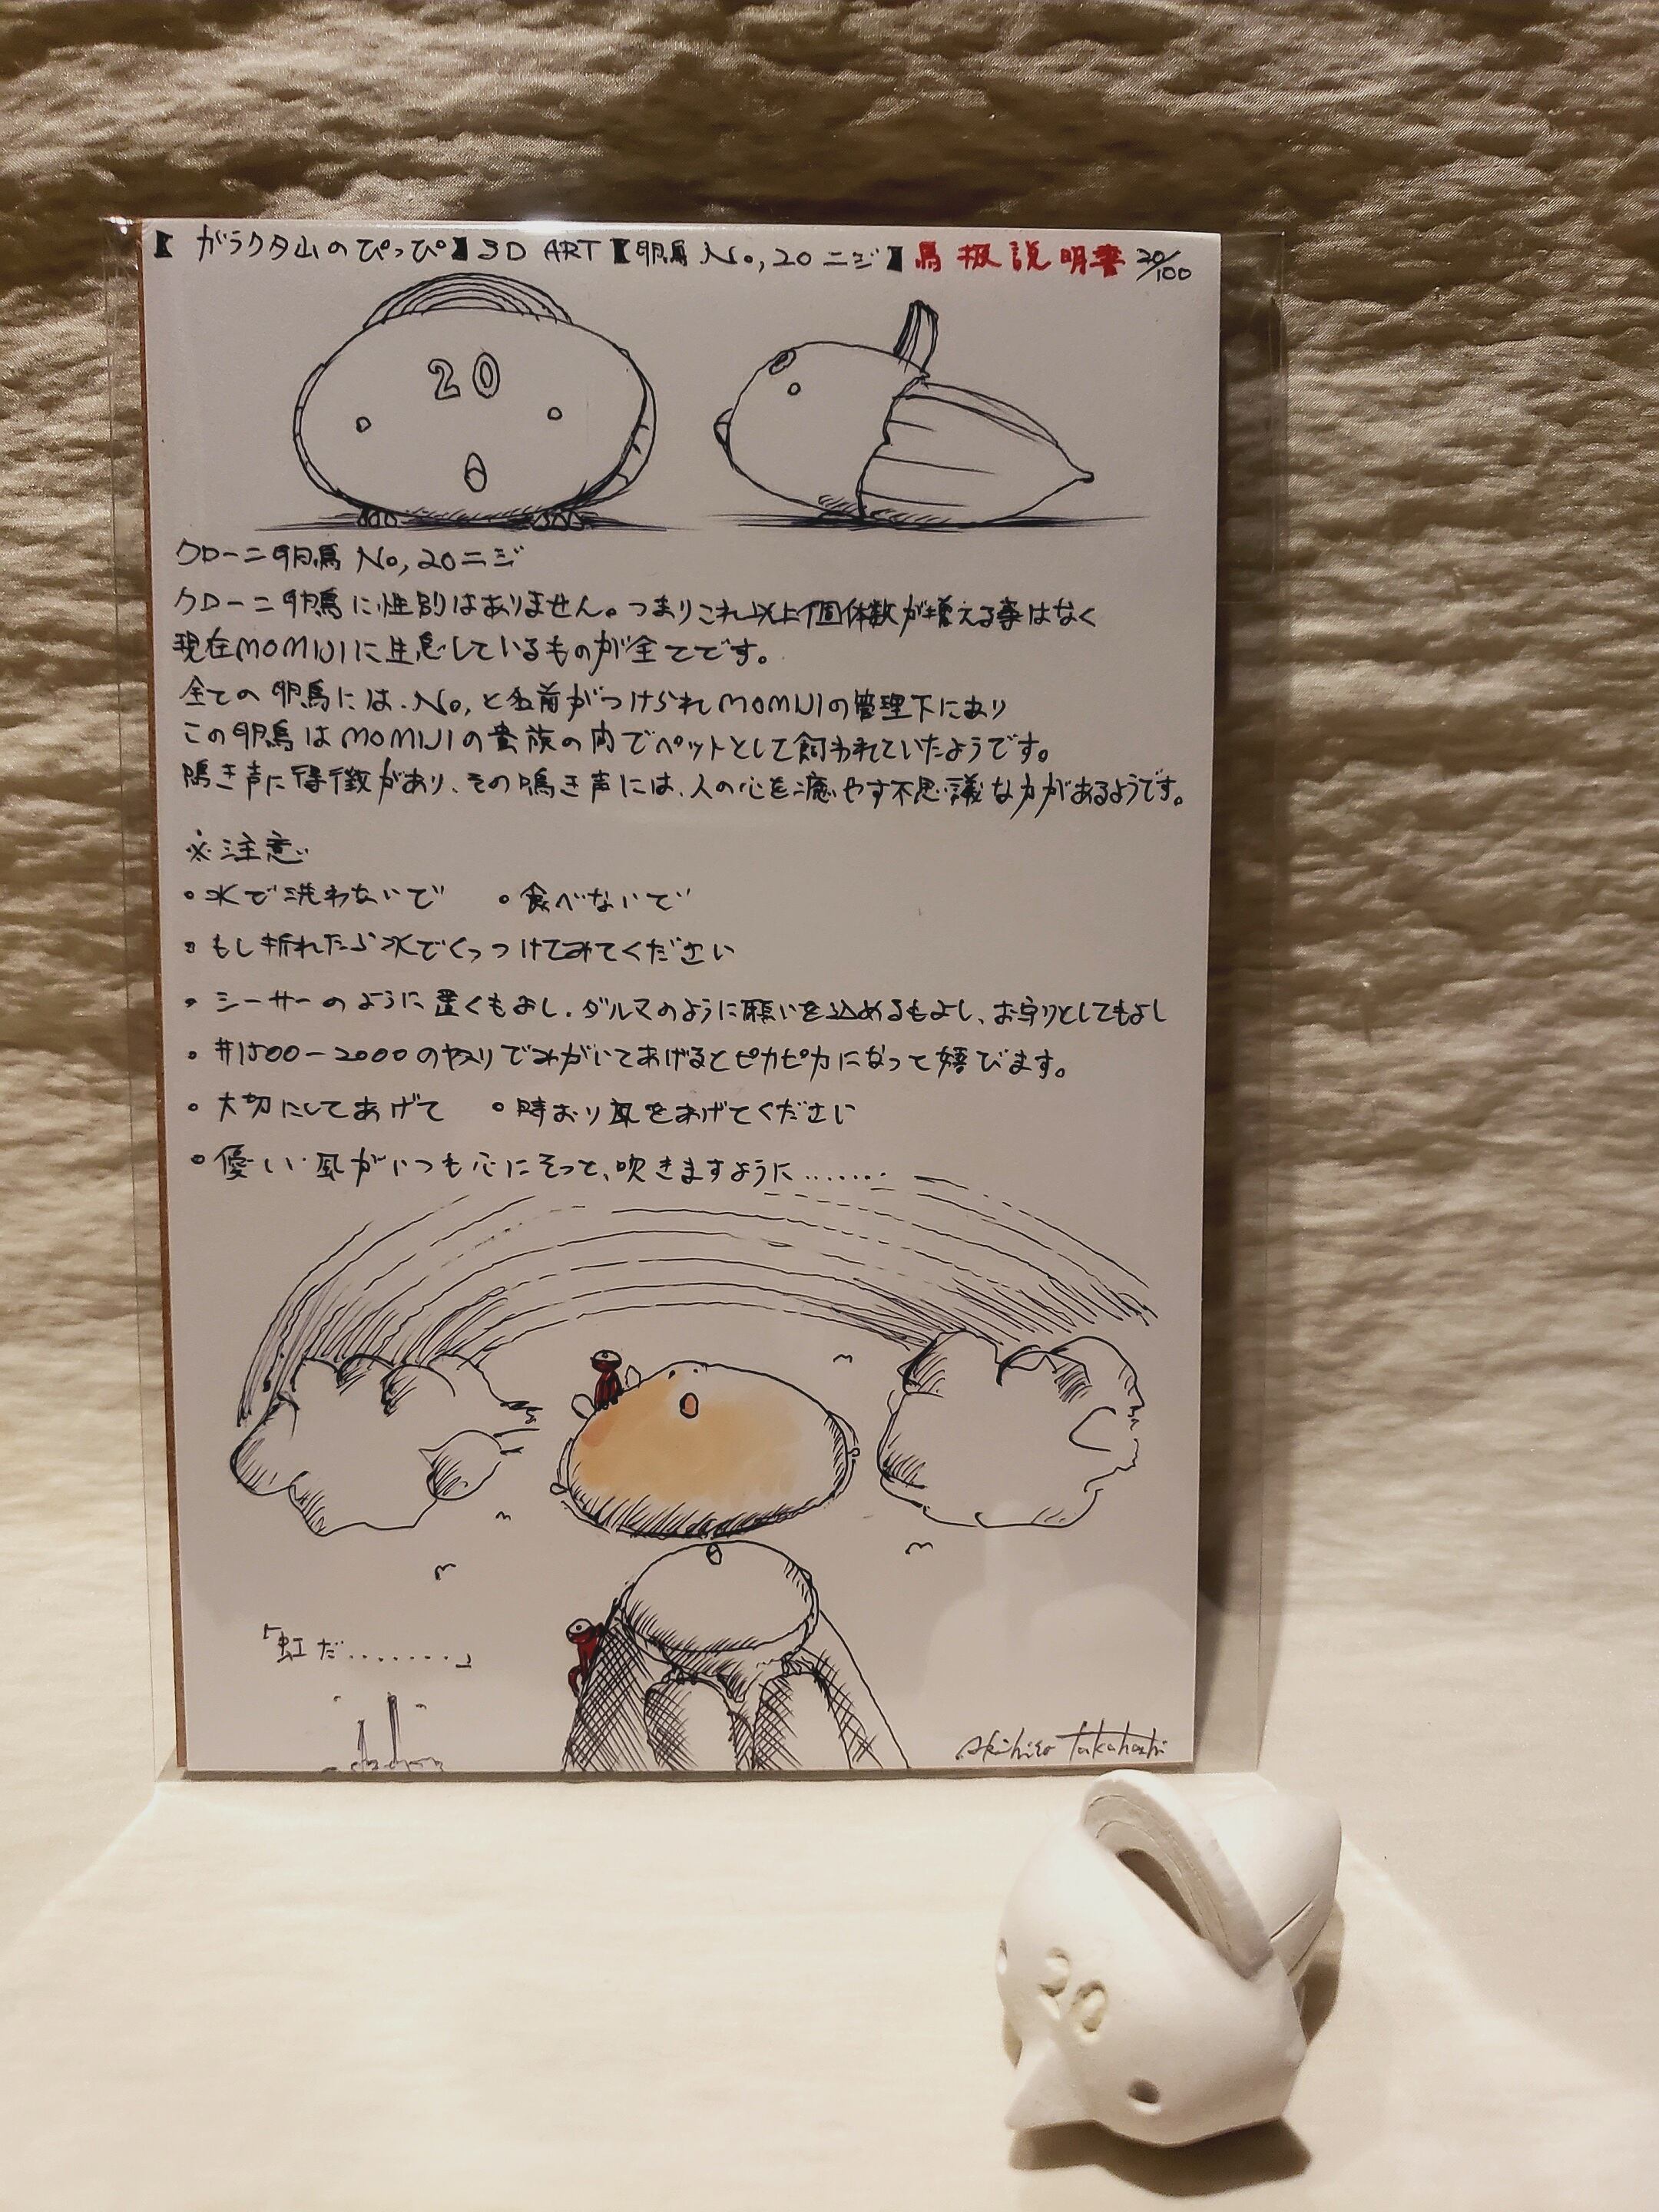 【ガラクタ山のぴっぴ】3D ART【卵鳥 No,20 ニジ】鳥扱説明書 20/100
20
クローニ卵鳥 No,20ニジ
クローニ卵鳥に性別はありません。つまりこれ以上個体数が増える事はなく
現在MOMIJIに生息しているものが全てです。
全ての卵鳥には、No,と名前がつけられMOMIJIの管理下にあり
この卵鳥はMOMIJIの貴族の内でペットとして飼われていたようです。
鳴き声に特徴があり、その鳴き声には、人の心を癒やす不思議な力があるようです。
※注意
・水で洗わないで ・食べないで
・もし折れたら水でくっつけてみてください
・シーサーのように置くもよし、ダルマのように願いを込めるもよし、お守りとしてもよし
・#1500-2000のヤスリでみがいてあげるとピカピカになって喜びます。
・大切にしてあげて ・時おり風をあげてください
・優しい風がいつも心にそっと、吹きますように.......
「虹だ.......」
Akihiro Takahashi
20